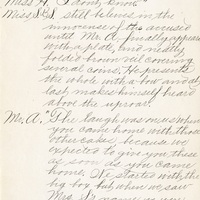 Miss A. "I don't know."
Miss S. still believes in the
innocence of the accused
until Mr. A. finally appears
with a plate, and neatly
folded brown veil covering
several cones. He presents
the whole with a bow and at
last, makes himself heard
above the uproar.
Mr. A. "The laugh was on us when
you came home with those
other cakes, because we
expected to give you these
as soon as you came
home. We started with the
big box, but when we saw
Mrs.